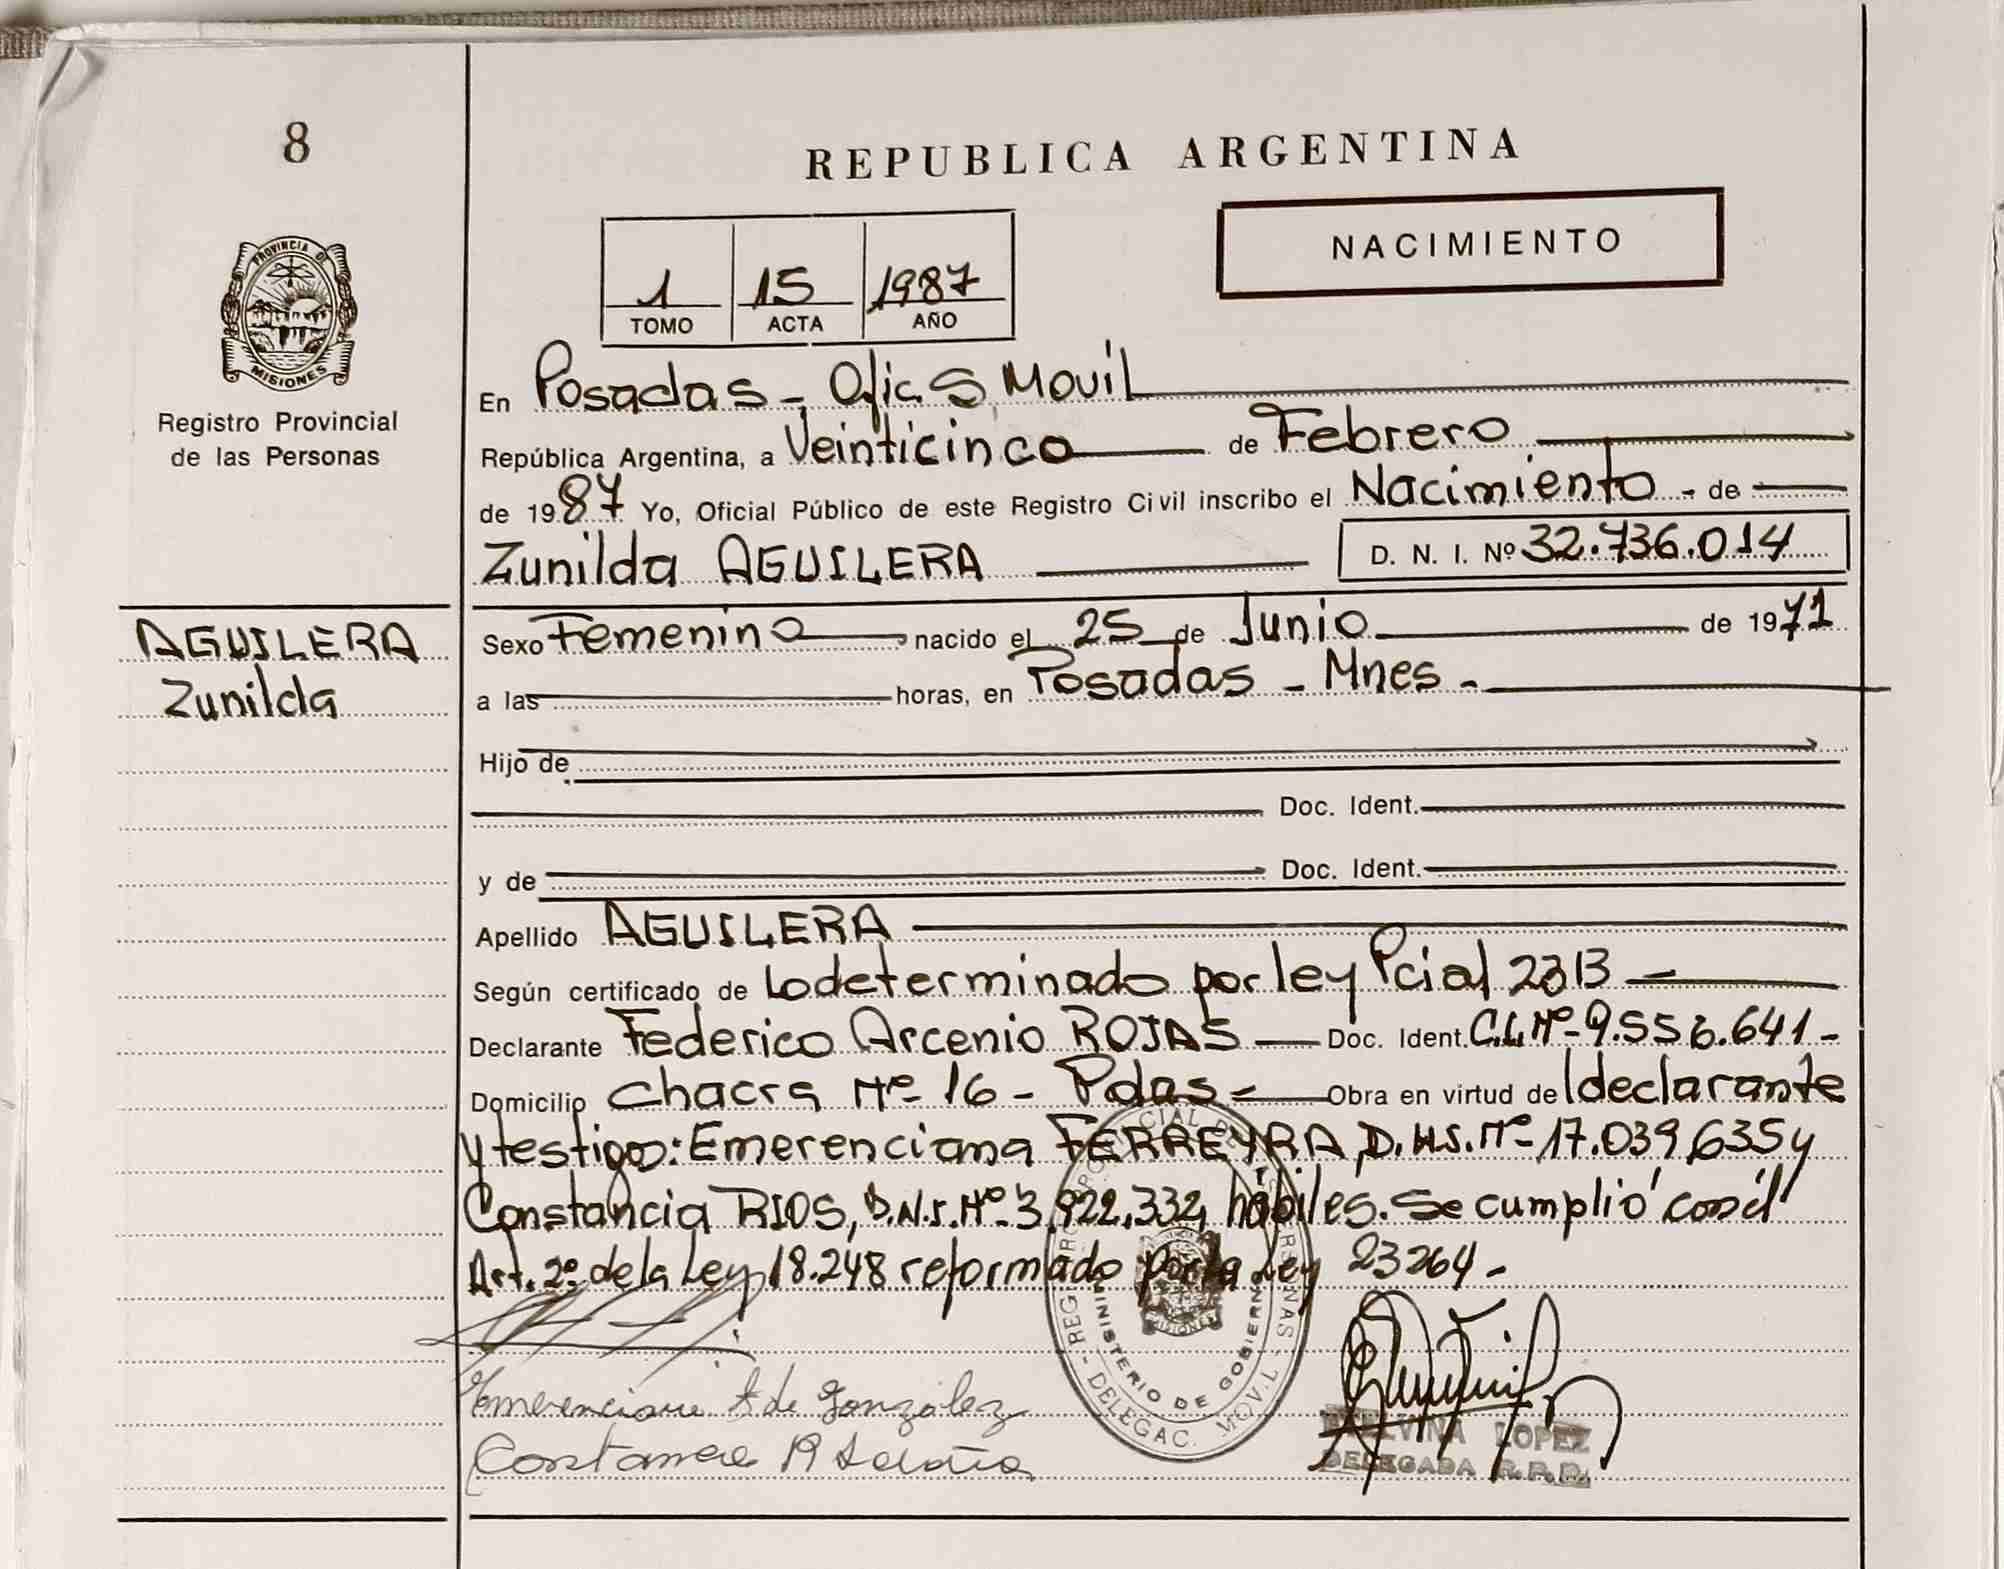 8
REPUBLICA ARGENTINA
NACIMIENTO
1 15 1987
TOMO ACTA AÑO
PROVINCIA DE
MISIONES
Registro Provincial
de las Personas
En Posadas - Ofic S Movil
República Argentina, a Veinticinco de Febrero
de 1987 Yo, Oficial Público de este Registro Civil inscribo el Nacimiento - de
Zunilda AGUILERA D. N. I. Nº 32.736.014
AGUILERA
Zunilda
Sexo Femenino nacido el 25 de Junio de 1971
a las horas, en Posadas - Mnes -
Hijo de
Doc. Ident.
y de Doc. Ident.
Apellido AGUILERA
Según certificado de Lo determinado por ley Pcial 2313 -
Declarante Federico Arcenio ROJAS Doc. Ident. C.I. Nº - 9.556.641 -
Domicilio Chacra Nº 16 - Pdas - Obra en virtud de l declarante
y testigo: Emerenciana FERREYRA, D.N.I. Nº - 17.039,635 y
Constancia RIOS, D.N.I. Nº - 3,922,332, hábiles. Se cumplió con el
Art. 2º de la Ley 18.248 reformado por la Ley 23264 -
de Gonzalez
MINISTERIO DE GOBIERNO
DELEGAC. MOVIL
LOPEZ
DELEGADA R.P.P.